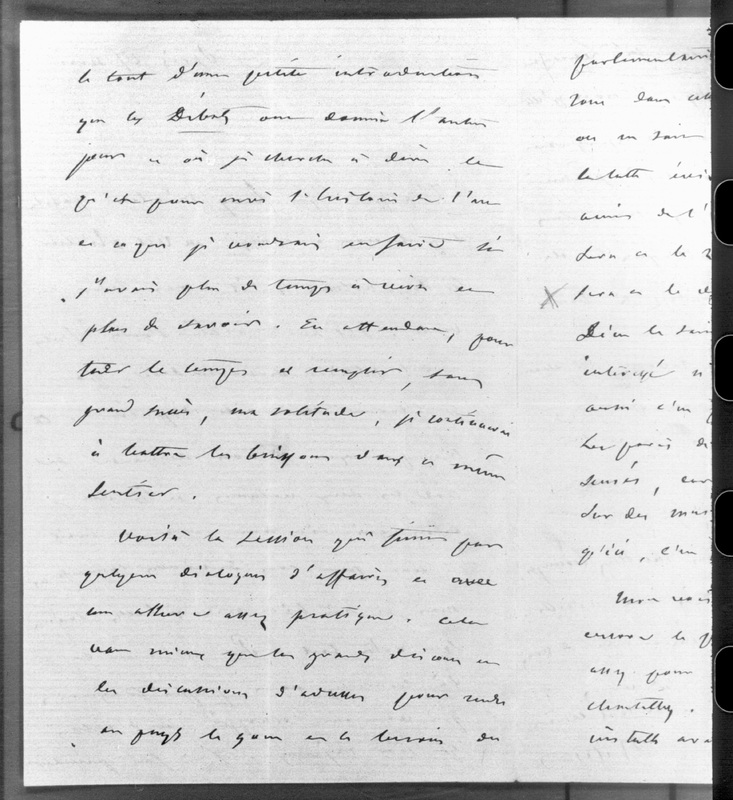 le tout d'une petite introduction
que les Débats ont donnée l'autre
jour et où je cherche à dire ce
qu'est pour moi l'histoire de l'art
et ce que je voudrais en faire si
j'avais plus de temps à vivre et
plus de savoir. En attendant, pour
tuer le temps et remplir, sans
grand succès, ma solitude, je continuerai
à battre les buissons dans ce même
sentier.
Voilà la session qui finit par
quelques dialogues d'affaires et avec
une allure assez pratique. Cela
vaut mieux que les grands discours et
les discussions d'adresse pour rendre
au pays le goût et le besoin du
parlementari
tout dans cet
on ne sait
la lutte
amis de l'
sera ce la
sera ce le
Dieu le sait
intéressé n
aussi c'est
Les partis
sensés, car
sur des
qu'ici, c'est
Mon
encore le
assez pour
Chantilly.